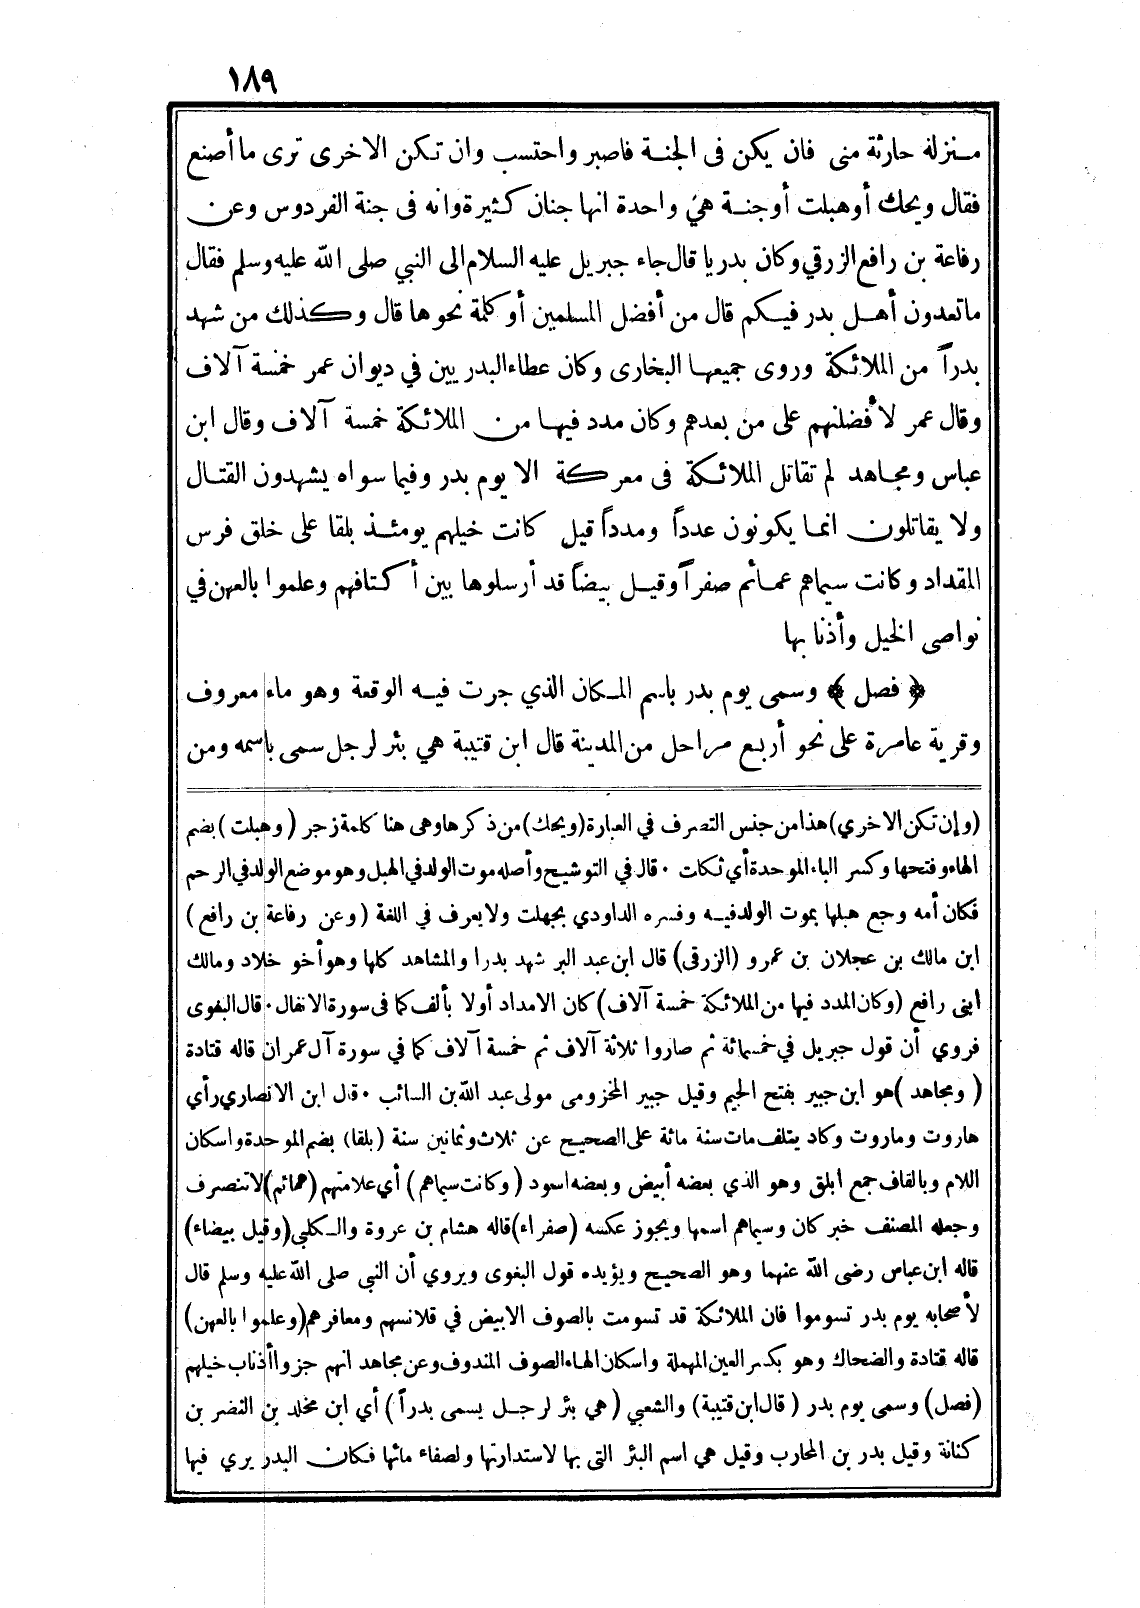 ١٨٩
منزلة حارثة منى فان يكن فى الجنة فاصبر واحتسب وان تكن الاخرى ترى ما أصنع
فقال ويحك أوهبلت أوجنة هي واحدة انها جنان كثيرة وانه فى جنة الفردوس وعن
رفاعة بن رافع الزرقي وكان بدريا قال جاء جبريل عليه السلام الى النبي صلى الله عليه وسلم فقال
ما تعدون أهل بدر فيكم قال من أفضل المسلمين أو كلمة نحوها قال وكذلك من شهد
بدراً من الملائكة وروى جميعها البخارى وكان عطاء البدريين في ديوان عمر خمسة آلاف
وقال عمر لأفضلنهم على من بعدهم وكان مدد فيها من الملائكة خمسة آلاف وقال ابن
عباس ومجاهد لم تقاتل الملائكة فى معركة الا يوم بدر وفيما سواه يشهدون القتال
ولا يقاتلون انما يكونون عدداً ومدداً قيل كانت خيلهم يومئذ بلقا على خلق فرس
المقداد وكانت سيماهم عمائم صفراً وقيل بيضاً قد أرسلوها بين أكتافهم وعلموا بالعهن في
نواصى الخيل وأذنابها
﴿ فصل ﴾ وسمى يوم بدر باسم المكان الذي جرت فيه الوقعة وهو ماء معروف
وقرية عامرة على نحو أربع مراحل من المدينة قال ابن قتيبة هي بئر لرجل سمى باسمه ومن
(وإن تكن الاخري) هذا من جنس التصرف في العبارة (ويحك) من ذكرها وهى هنا كلمة زجر (وهبلت) بضم
الهاء وفتحها وكسر الباء الموحدة أي ثكلت ٠ قال في التوشيح وأصله موت الولد في الهبل وهو موضع الولد في الرحم
فكان أمه وجع هبلها بموت الولد فيه وفسره الداودي بجهلت ولا يعرف في اللغة (وعن رفاعة بن رافع)
ابن مالك بن عجلان بن عمرو (الزرقى) قال ابن عبد البر شهد بدرا والمشاهد كلها وهو أخو خلاد ومالك
ابنى رافع (وكان المدد فيها من الملائكة خمسة آلاف) كان الامداد أولا بألف كما فى سورة الانفال ٠ قال البغوى
فروي أن قول جبريل في خمسمائة ثم صاروا ثلاثة آلاف ثم خمسة آلاف كما في سورة آل عمران قاله قتادة
(ومجاهد) هو ابن جبير بفتح الجيم وقيل جبير المخزومى مولى عبد الله بن السائب ٠ قال ابن الانصاري رأي
هاروت وماروت وكاد يتلف مات سنة مائة على الصحيح عن ثلاث وثمانين سنة (بلقا) بضم الموحدة واسكان
اللام وبالقاف جمع ابلق وهو الذي بعضه أبيض وبعضه اسود (وكانت سيماهم) أي علامتهم (عمائم) لا تنصرف
وجعله المصنف خبر كان وسيماهم اسمها ويجوز عكسه (صفراء) قاله هشام بن عروة والكلبي (وقيل بيضاء)
قاله ابن عباس رضى الله عنهما وهو الصحيح ويؤيده قول البغوى ويروي أن النبي صلى الله عليه وسلم قال
لأصحابه يوم بدر تسوموا فان الملائكة قد تسومت بالصوف الابيض في قلانسهم ومغافرهم (وعلموا بالعهن)
قاله قتادة والضحاك وهو بكسر العين المهملة واسكان الهاء الصوف المندوف وعن مجاهد انهم جزوا أذناب خيلهم
(فصل) وسمى يوم بدر (قال ابن قتيبة) والشعبي (هي بئر لرجل يسمى بدراً) أي ابن مخلد بن النضر بن
كنانة وقيل بدر بن المحارب وقيل هي اسم البئر التى بها لاستدارتها ولصفاء مائها فكان البدر يري فيها